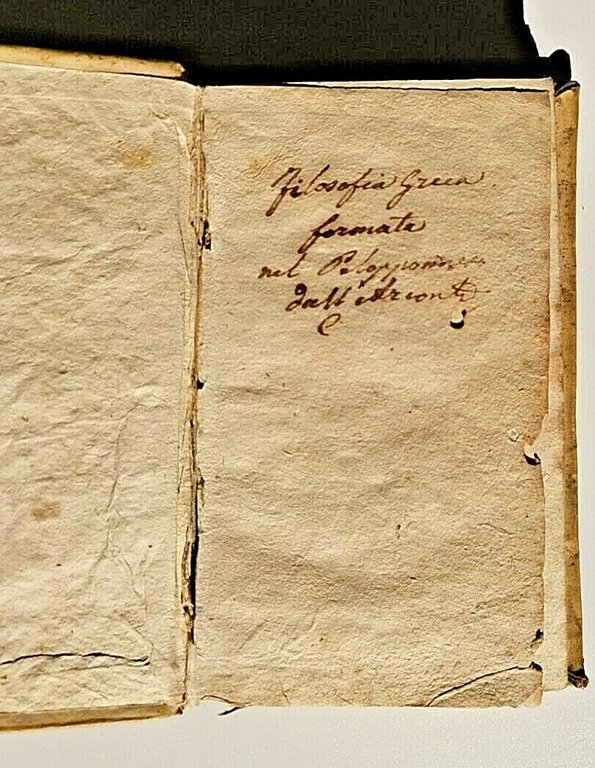 Filosofia Greca
formata
nel Pelopponneso
dall'Arconte
C